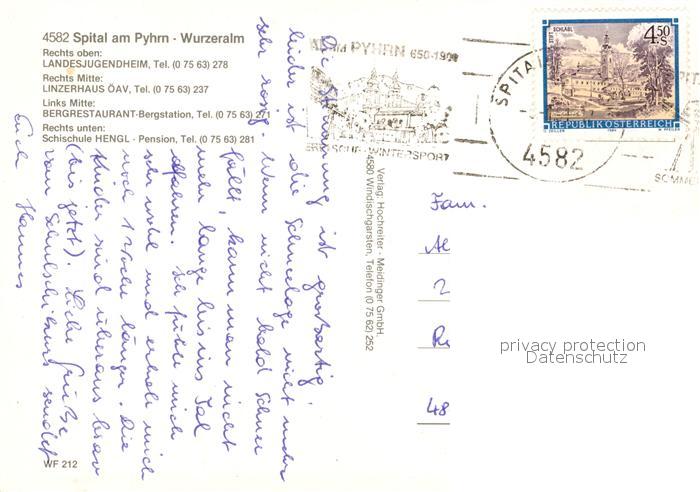 4582 Spital am Pyhrn - Wurzeralm
Rechts oben:
LANDESJUGENDHEIM, Tel. (0 75 63) 278
Rechts Mitte:
LINZERHAUS ÖAV, Tel. (0 75 63) 237
Links Mitte:
BERGRESTAURANT-Bergstation, Tel. (0 75 63) 271
Rechts unten:
Schischule HENGL - Pension, Tel. (0 75 63) 281
Die Stimmung ist großartig,
leider ist die Schneelage nicht mehr
sehr rosig. Wenn nicht bald Schnee
fällt, kann man nicht
mehr lange bis ins Tal
abfahren. Ich fühle mich
sehr wohl und erhole mich
noch 1 Woche länger. Die
Kinder sind überaus brav
(bis jetzt). Liebe Grüße
vom Schulschikurs sendet
Euch Hannes
WF 212
Verlag: Hochreiter - Meidinger GmbH,
4580 Windischgarsten, Telefon (0 75 62) 252
PYHRN 650-190
WINTERSPORT
SPITAL
4582
SOMME
STIFT SCHLÄGL
4.50
S
REPUBLIK ÖSTERREICH
O. ZEILLER
1984
W. PFEILER
Fam.
Al
2
Re
48
privacy protection
Datenschutz